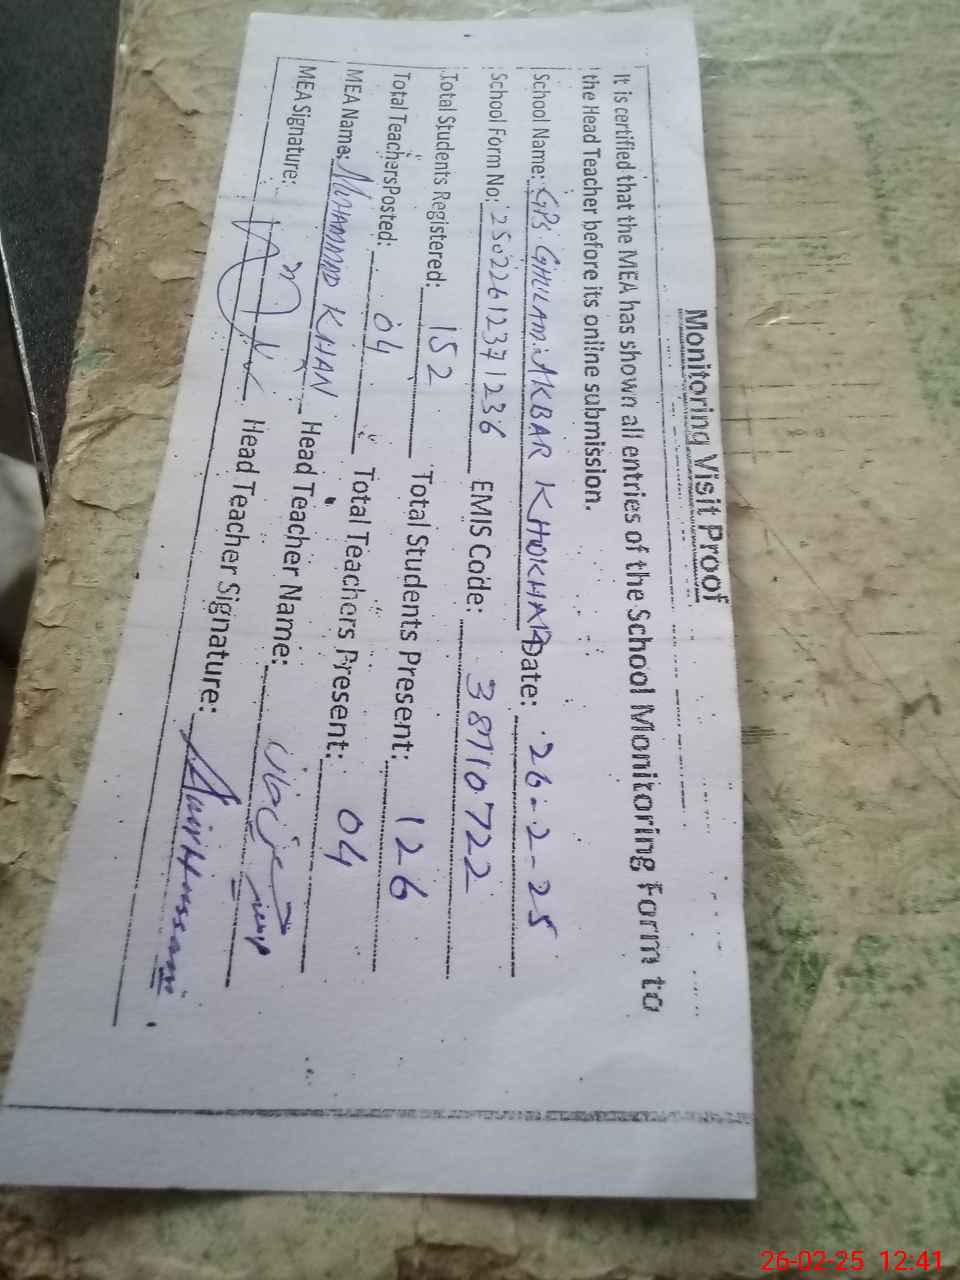 Monitoring Visit Proof
It is certified that the MEA has shown all entries of the School Monitoring Form to
the Head Teacher before its online submission.
School Name: GPS GHULAM AKBAR KHOKHAR Date: 26-2-25
School Form No: 25022612371236 EMIS Code: 38710722
Total Students Registered: 152 Total Students Present: 126
Total Teachers Posted: 04 Total Teachers Present: 04
MEA Name: MUHAMMAD KHAN Head Teacher Name:
MEA Signature: Head Teacher Signature:
26-02-25 12:41